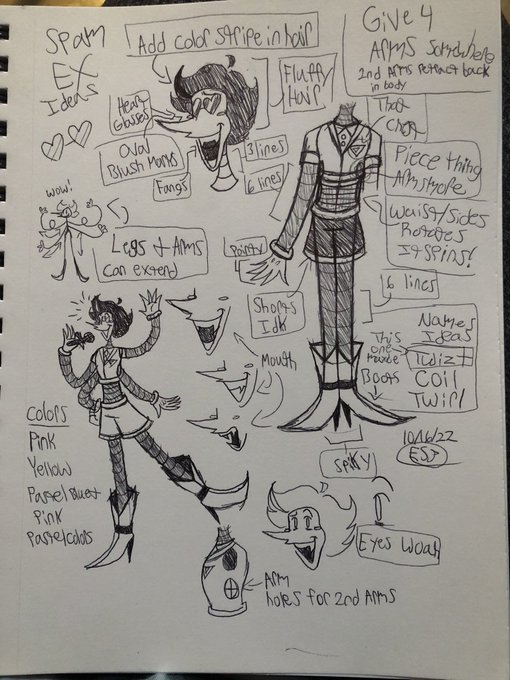 Spam
EX
Ideas
Add color stripe in hair
Give 4
Arms somewhere
2nd Arms retract back
in body
Fluffy
Hair
Heart
Glasses
Oval
Blush Marks
Fangs
3 lines
6 lines
That
Chest
Piece thing
Armshole
Waist/sides
Rotates
It spins!
wow!
Legs + Arms
Can extend
Pointy
Shorts
Idk
6 lines
Mouth
Names
Ideas
This
one
Twizt
Coil
Twirl
Boots
10/16/22
ESJ
Spiky
Colors
Pink
Yellow
Pastel Blue
Pink
Pastel colors
Eyes Woah
Arm
holes for 2nd Arms